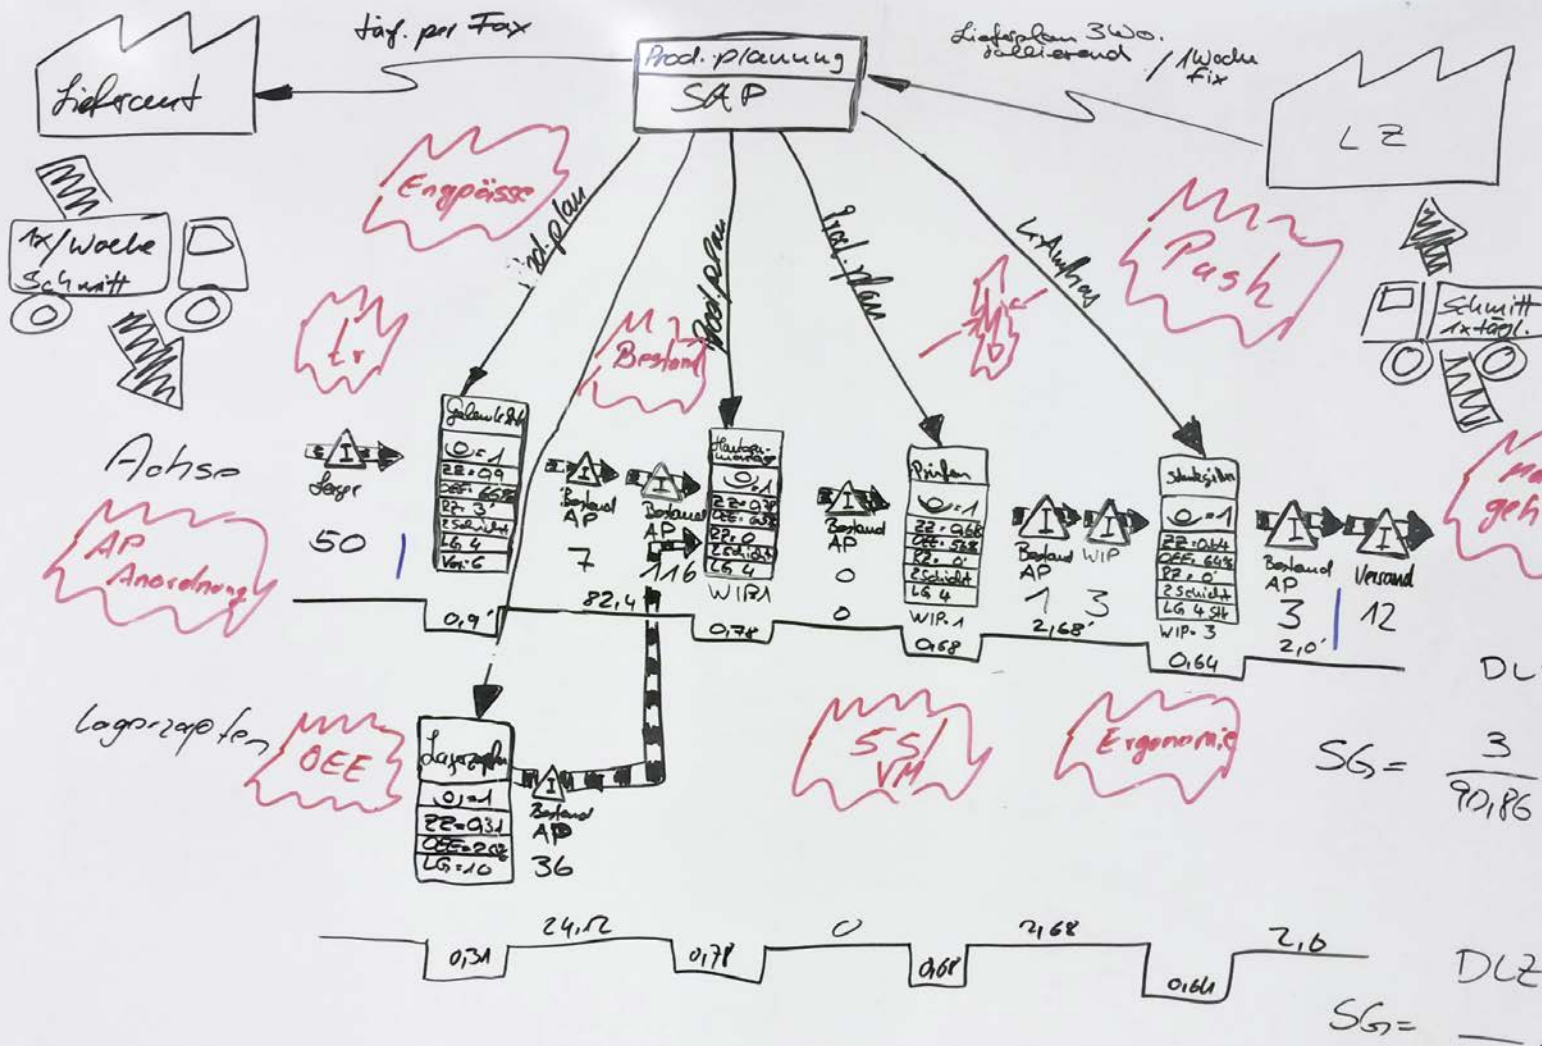 tägl. per Fax
Prod.planung
SAP
Lieferplan 3Wo.
rollierend / 1Woche
Fix
Lieferant
LZ
Engpässe
Push
Prod.plan
Prod.plan
1x/Woche
Schmitt
Schmitt
1x tägl.
tr
Bestand
Achse
I
Lager
50
AP
Anordnung
=1
ZZ=0,9
OEE=66%
RZ=3'
2Schicht
LG 4
I
Bestand
AP
7
I
Bestand
AP
116
=1
ZZ=0,78
RZ=0
2Schicht
LG 4
WIP1
I
Bestand
AP
0
Prüfen
=1
ZZ=0,68
OEE=58%
RZ=0'
2Schicht
LG 4
WIP.1
I
Bestand
AP
1
I
WIP
3
=1
ZZ=0,64
OEE=64%
RZ=0'
2Schicht
LG 4
WIP. 3
I
Bestand
AP
3
I
Versand
12
geh
0,9'
82,4
0,78
0
0,68
2,68'
0,64
2,0'
DL
Lagerzapfen
OEE
Lagerzapfen
=1
ZZ=0,31
LG=10
I
Bestand
AP
36
5S/
VM
Ergonomie
SG=
3
90,86
0,31
24,12
0,78
0
0,68
2,68
0,64
2,0
DLZ
SG=